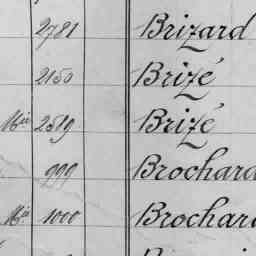 2781 Brizard
2150 Brizé
Mlle 2519 Brizé
999 Brochard
Mlle 1000 Brochard